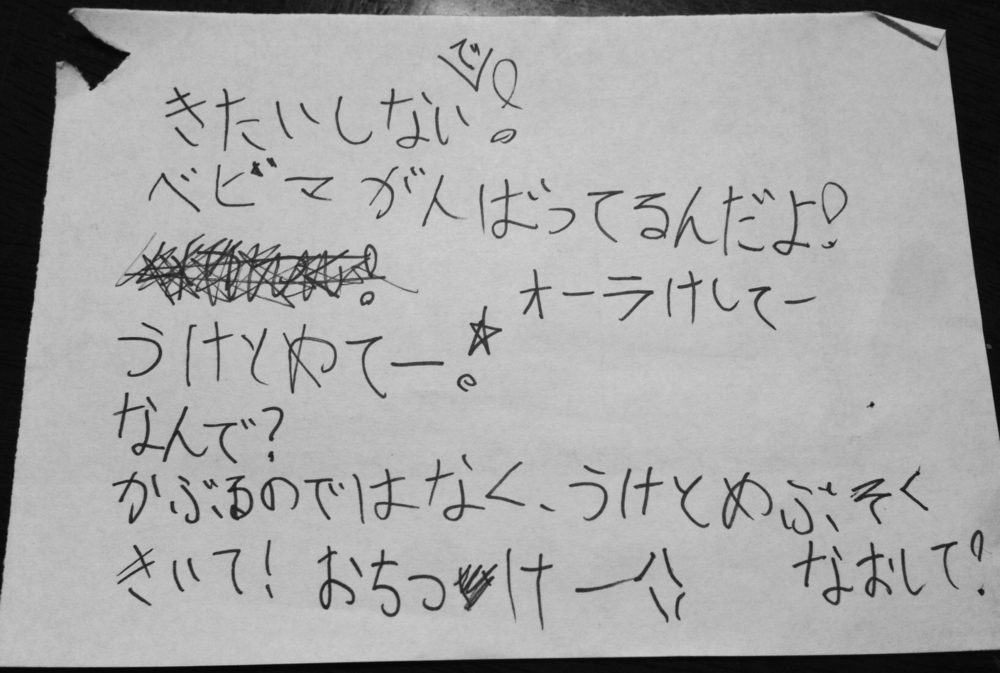 きたいしないで!
ベビマ がんばってるんだよ!
オーラけしてー
うけとめてー☆
なんで?
かぶるのではなく、うけとめぶそく
きいて! おちつけー なおして?